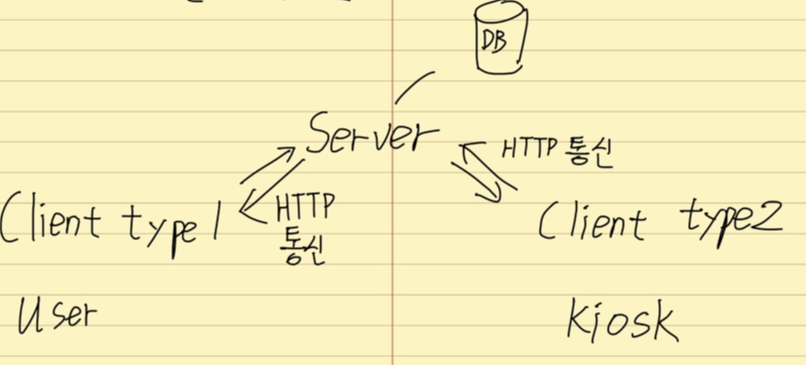 DB
Server
HTTP 통신
Client type1
HTTP
통신
Client type2
User
Kiosk